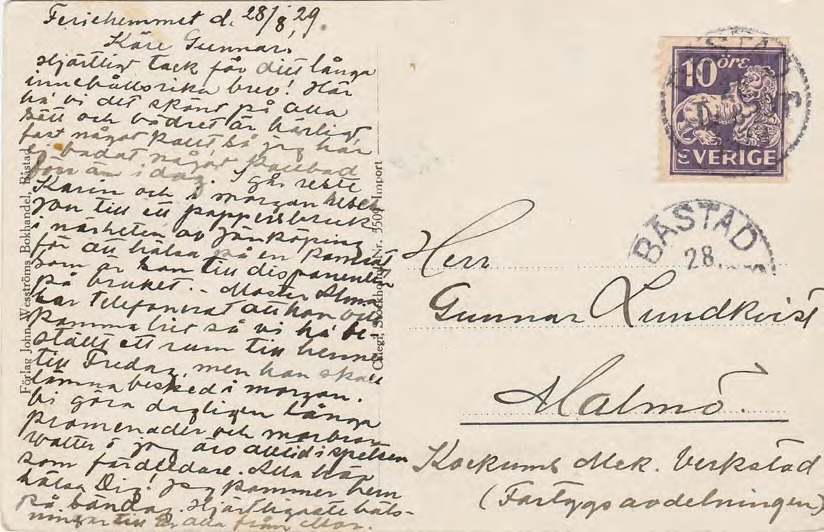 Feriehemmet d. 28/8, 29.
Käre Gunnar.
Hjärtligt tack för ditt långa
innehållsrika brev! Här
ha vi det skönt på alla
sätt och vädret är härligt,
fast något kallt så jag har
ej badat något kallbad
förr än i dag. I går reste
Karin och i morgon reser
Jon till ett pappersbruk
i närheten av Jönköping
för att hälsa på en kamrat
som är son till disponenten
på bruket. - Moster
har telefonerat att hon vill
komma hit så vi ha be-
ställt ett rum till henne
till Fredag, men hon skall
lämna besked i morgon.
Vi göra dagligen långa
promenader och morbror
Walter o jag äro alltid i spetsen
som färdledare. Alla här
hälsa Dig! Jag kommer hem
på söndag. Hjärtligaste häls-
ningar till Er alla från Mor.
Förlag John. Wesströms Bokhandel, Båstad
Nr. 5509 Import
10 öre
SVERIGE
BÅSTAD
28.
Herr
Gunnar Lundkvist
Malmö.
Kockums Mek. Verkstad
(Fartygsavdelningen)